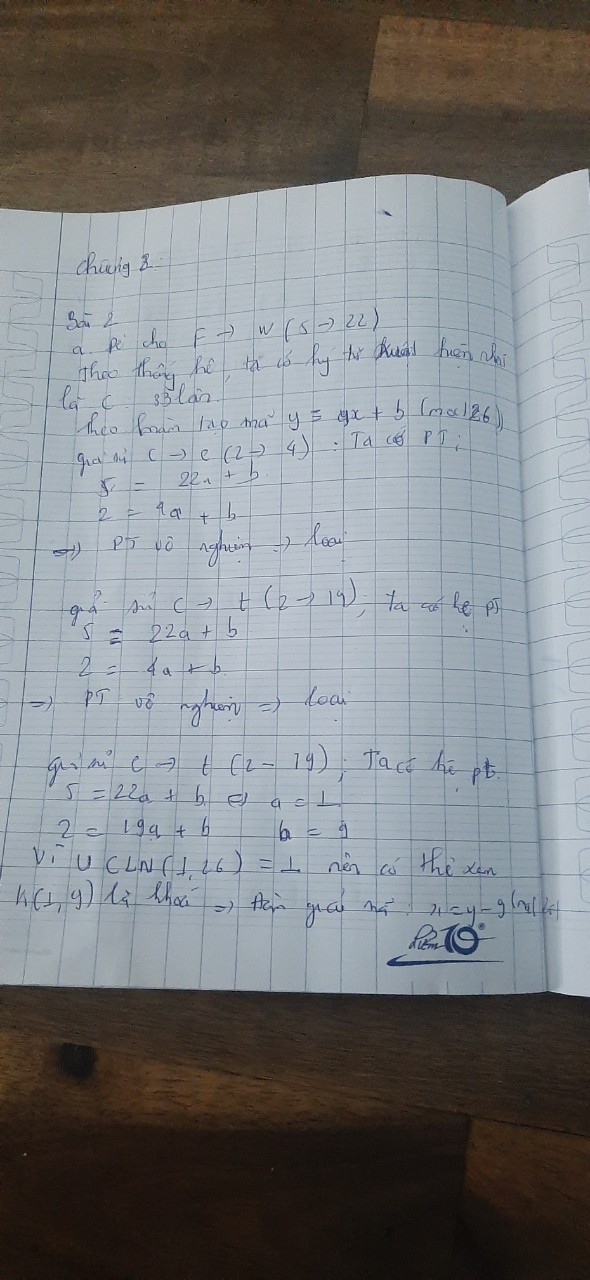 Chương 3
Bài 2
a, Đề cho F → W (5 → 22)
Theo thống kê, ta có ký tự xuất hiện nhiều
là C: 33 lần
Theo hàm lập mã y ≡ ax + b (mod 26)
giả sử C → e (2 → 4) : Ta có PT:
5 = 22a + b
2 = 4a + b
=> PT vô nghiệm => loại
giả sử C → t (2 → 19); Ta có hệ PT
5 = 22a + b
2 = 4a + b
=> PT vô nghiệm => loại
giả sử C → t (2 - 19); Ta có hệ pt
5 = 22a + b <=> a = 1
2 = 19a + b b = 9
Vì UCLN(1, 26) = 1 nên có thể xem
K(1, 9) là khoá => Hàm giải mã: x = y - 9 (mod 26)
điểm 10